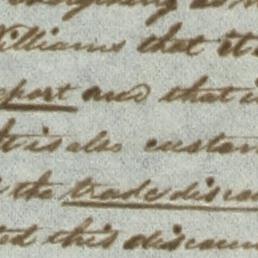 Williams that it
and that i
It is also custom
the trade disco
this discoun